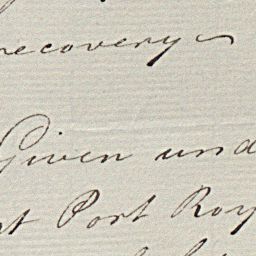 recovery
Given und
at Port Roy